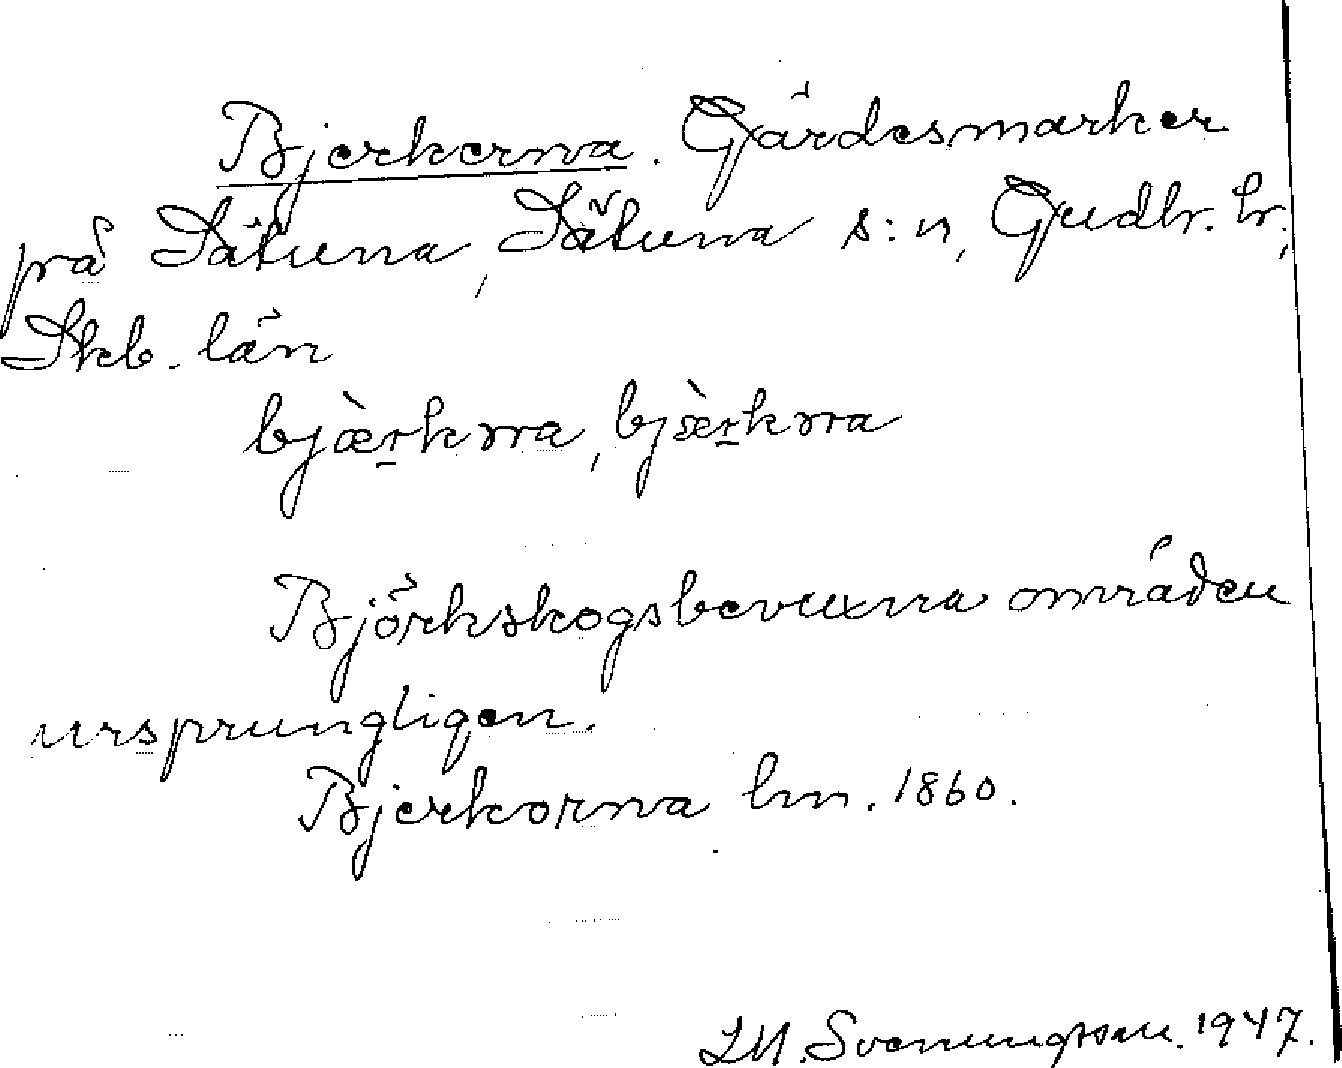 Bjerkerna. Gärdesmarker
på Sätuna, Sätuna s:n, Gudh. hr;
Skb. län
bjæ̀rkrra, bjæ̀rkrra
Björkskogsbevuxna områden
ursprungligen.
Bjerkorna hm. 1860.
LM. Svenungsson. 1947.